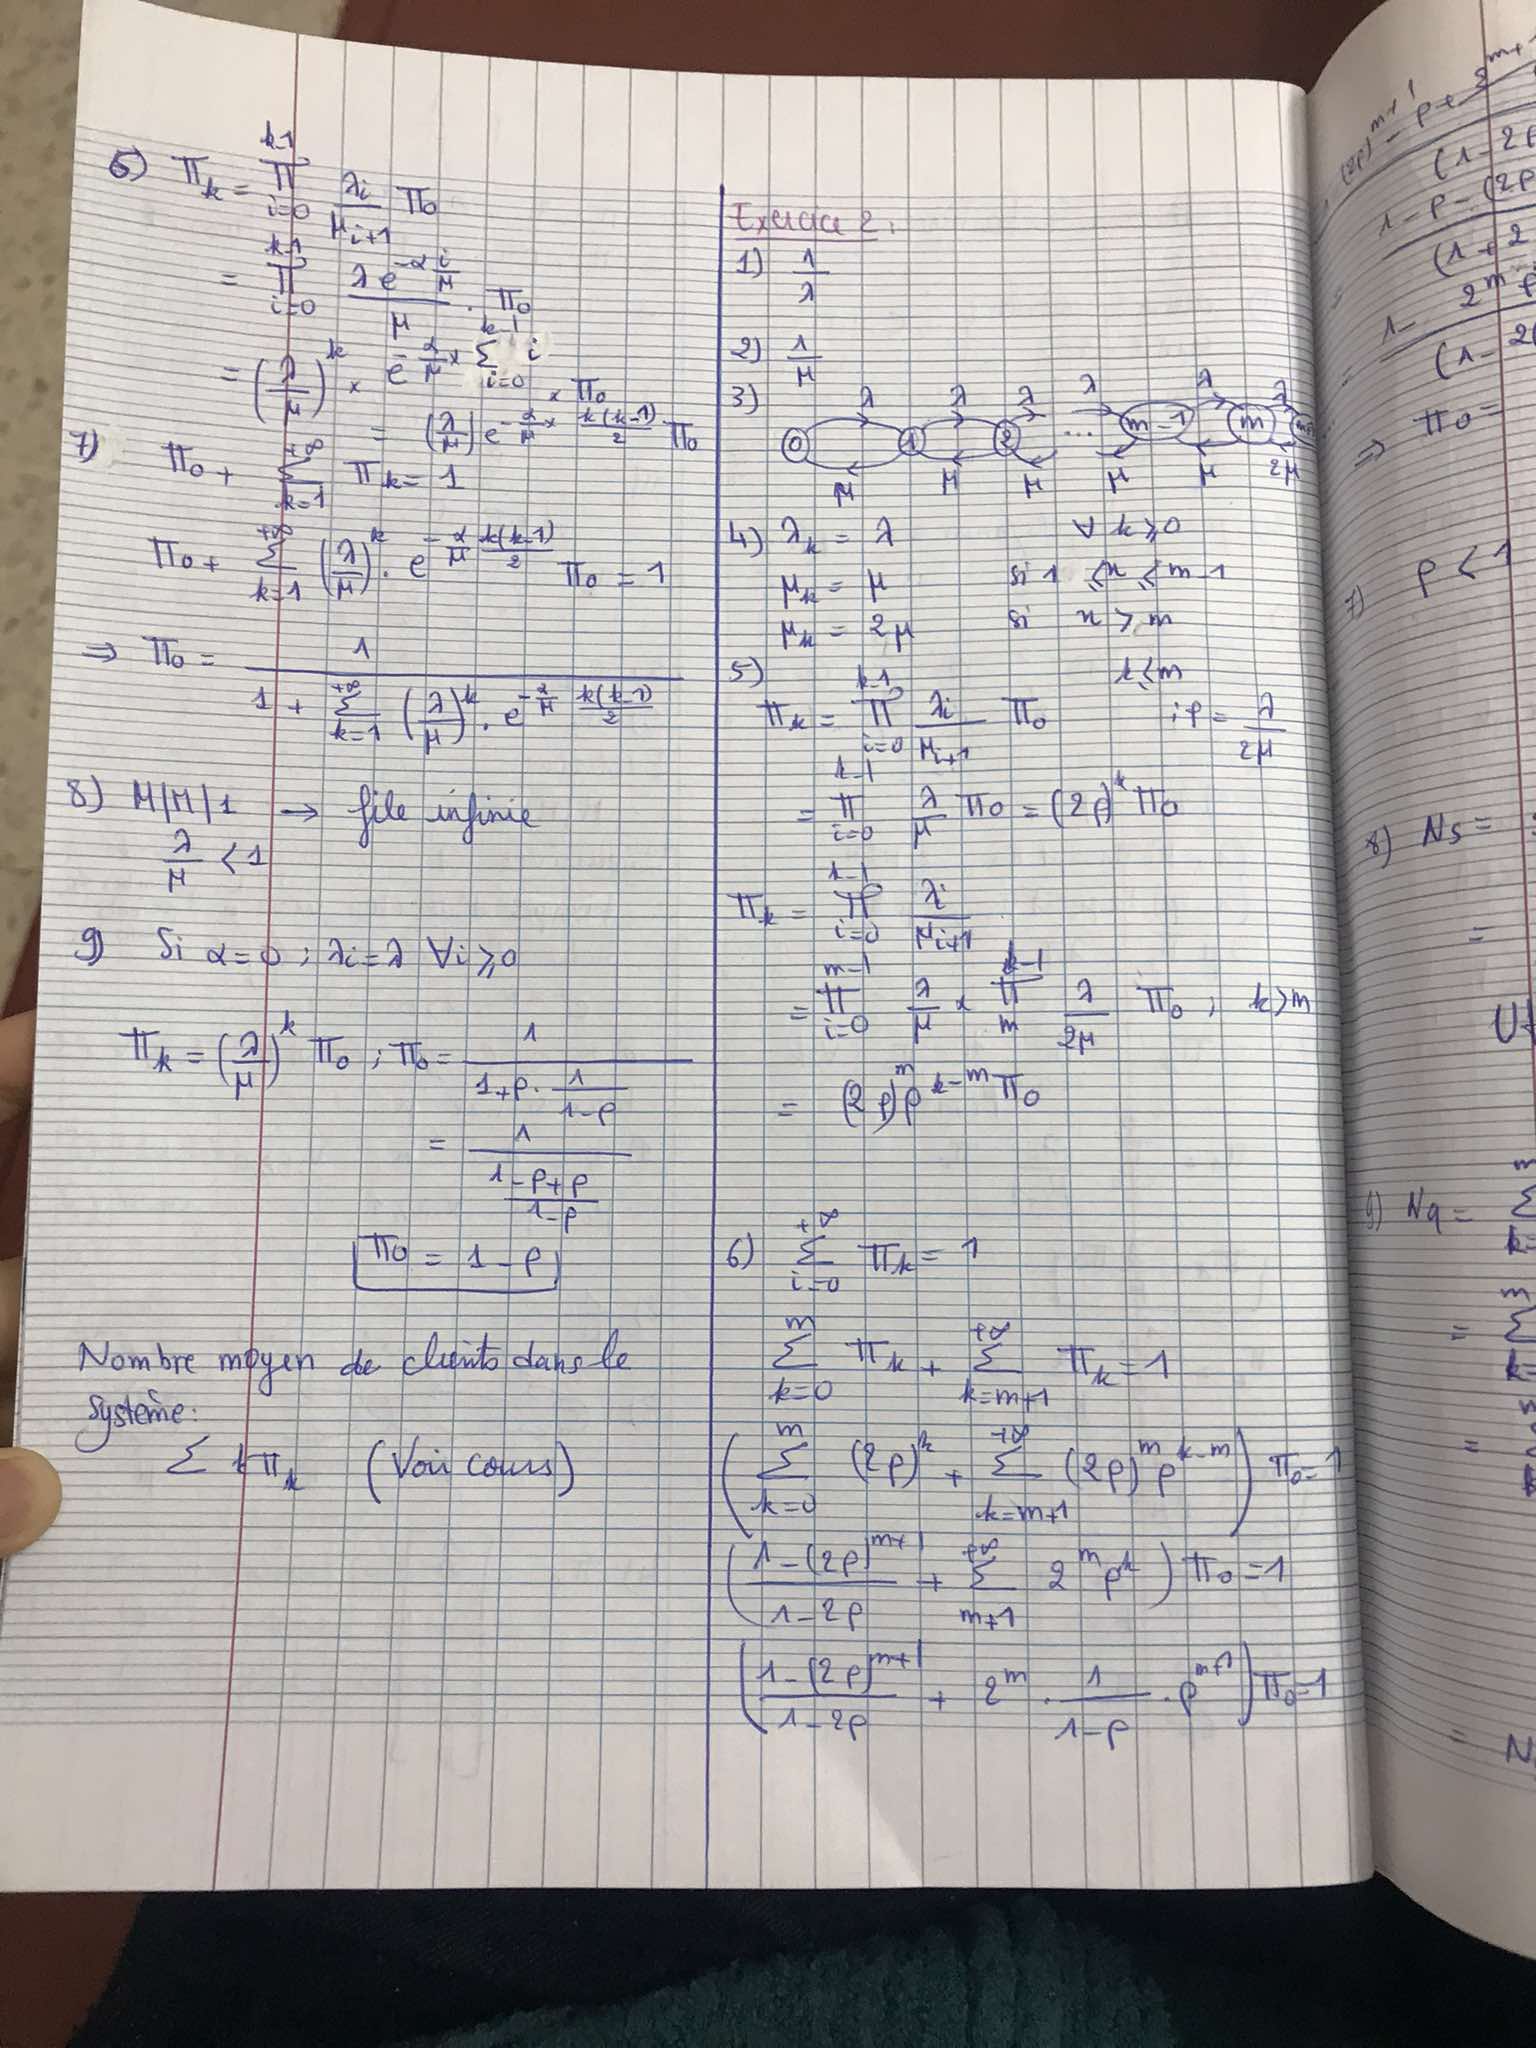 6) Π_k = ∏_{i=0}^{k-1} λ_i/μ_{i+1} Π_0
= ∏_{i=0}^{k-1} (λ e^{-α i/μ})/μ . Π_0
= (λ/μ)^k × e^{-α/μ × Σ_{i=0}^{k-1} i} × Π_0
= (λ/μ) e^{-α/μ × k(k-1)/2} Π_0
7) Π_0 + Σ_{k=1}^{+∞} Π_k = 1
Π_0 + Σ_{k=1}^{+∞} (λ/μ)^k . e^{-α/μ k(k-1)/2} Π_0 = 1
⇒ Π_0 = 1/(1 + Σ_{k=1}^{+∞} (λ/μ)^k . e^{-α/μ k(k-1)/2})
8) M|M|1 → file infinie
λ/μ < 1
9) Si α = 0 ; λ_i = λ ∀i ⩾ 0
Π_k = (λ/μ)^k Π_0 ; Π_0 = 1/(1+ρ . 1/(1-ρ))
= 1/((1-ρ+ρ)/(1-ρ))
Π_0 = 1-ρ
Nombre moyen de clients dans le
système:
Σ k Π_k (Voir cours)
Exercice 2:
1) 1/λ
2) 1/μ
3) λ λ λ λ λ λ
0 1 2 ... m-1 m
μ μ μ μ μ 2μ
4) λ_k = λ ∀ k ⩾ 0
μ_k = μ si 1 ⩽ n ⩽ m-1
μ_k = 2μ si n > m
5) k ⩽ m
Π_k = ∏_{i=0}^{k-1} λ_i/μ_{i+1} Π_0 ; ρ = λ/2μ
= ∏_{i=0}^{k-1} λ/μ Π_0 = (2ρ)^k Π_0
Π_k = ∏_{i=0}^{k-1} λ_i/μ_{i+1}
= ∏_{i=0}^{m-1} λ/μ × ∏_{m}^{k-1} λ/2μ Π_0 ; k > m
= (2ρ)^m ρ^{k-m} Π_0
6) Σ_{i=0}^{+∞} Π_k = 1
Σ_{k=0}^{m} Π_k + Σ_{k=m+1}^{+∞} Π_k = 1
(Σ_{k=0}^{m} (2ρ)^k + Σ_{k=m+1}^{+∞} (2ρ)^m ρ^{k-m}) Π_0 = 1
((1-(2ρ)^{m+1})/(1-2ρ) + Σ_{m+1}^{+∞} 2^m ρ^k) Π_0 = 1
((1-(2ρ)^{m+1})/(1-2ρ) + 2^m . 1/(1-ρ) . ρ^{m+1}) Π_0 = 1
⇒ Π_0 =
7) ρ < 1
8) N_s =
=
9) N_q =
=
=
=